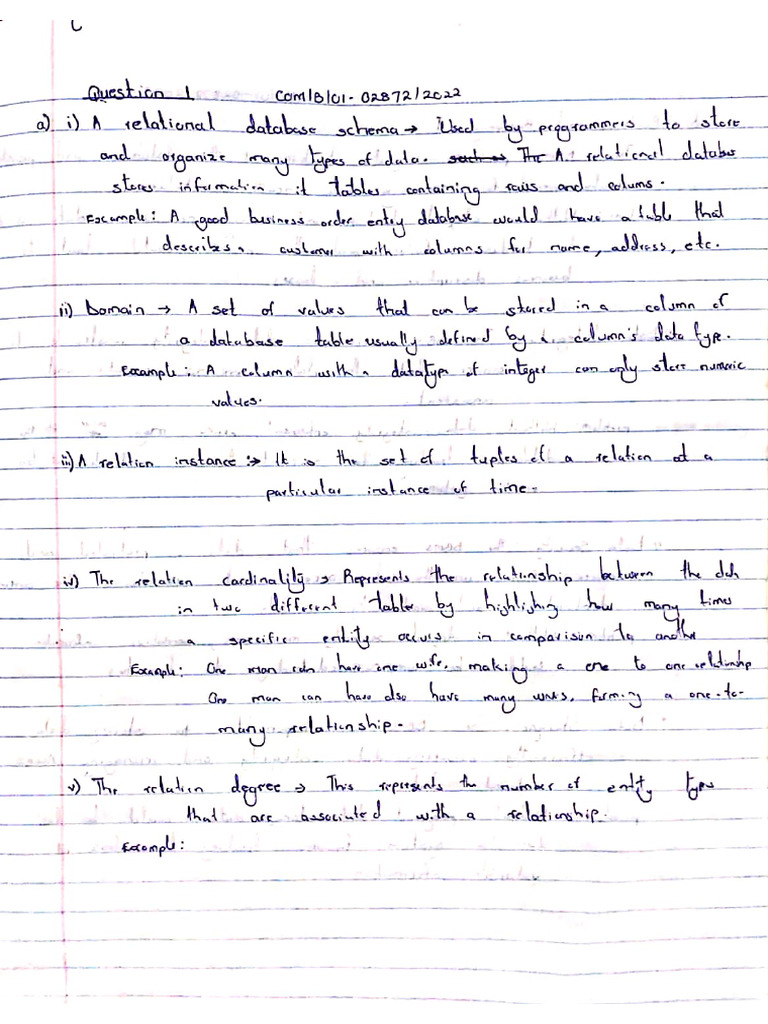 Question 1 COM/B/01-02872/2022
a) i) A relational database schema → Used by programmers to store
and organize many types of data. such as The A. relational databas
stores information it tables containing rows and colums.
Example: A good business order entry database would have a table that
describes a customer with columns for name, address, etc.
ii) Domain → A set of values that can be stored in a column of
a database table usually defined by a column's data type.
Example: A column with a datatype of integer can only store numeric
values.
iii) A relation instance :→ It is the set of tuples of a relation at a
particular instance of time.
iv) The relation cardinality → Represents the relationship between the data
in two different tables by highlighting how many times
a specific entity occurs in comparison to another
Example: One man can have one wife, making a one to one relationship
One man can have also have many wives, forming a one-to-
many relationship.
v) The relation degree → This represents the number of entity types
that are associated with a relationship.
Example: